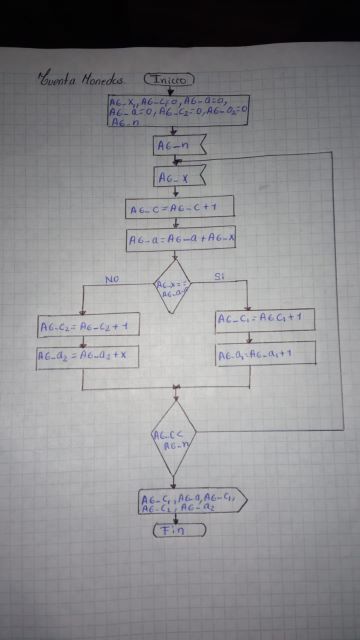 Cuenta Monedas.
Inicio
AG_x, AG_c=0, AG_a=0,
AG_a=0, AG_c2=0, AG_a2=0
AG_n
AG_n
AG_x
AG_c = AG_c+1
AG_a=AG_a+AG_x
NO
SI
AG_x==
AG_c2=AG_c2+1
AG_C1=AGC1+1
AG_a2=AG_a2+x
AG_a1=AG_a1+1
AG_C<
AG_n
AG_C1, AG_a, AG_C1,
AG_C2, AG_a2
Fin